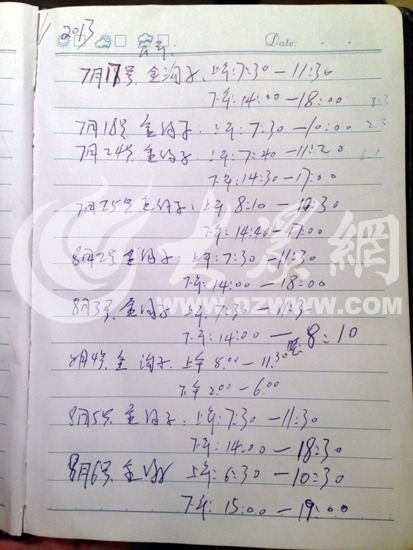 2013
Date:
7月17号 金沟子. 上午:7:30—11:30
下午:14:00—18:00
7月18号 金沟子: 上午:7:30—10:00
7月24号 金沟子: 上午:7:40—11:20
下午:14:30—17:00
7月25号 金沟子: 上午 8:10—12:30
下午:14:40—17:00
8月2号 金沟子: 上午:7:30—11:30
下午:14:00—18:00
8月3号 金沟子: 上午:7:30—11:30
下午:14:00—晚8:10
8月4号 金沟子. 上午 8:00—11:30
下午 2:00—6:00
8月5号 金沟子: 上午:7:30—11:30
下午:14:00—18:30
8月6号 金沟子 上午:6:30—10:30
下午:15:00—19:00
大眾網
WWW.DZWWW.COM